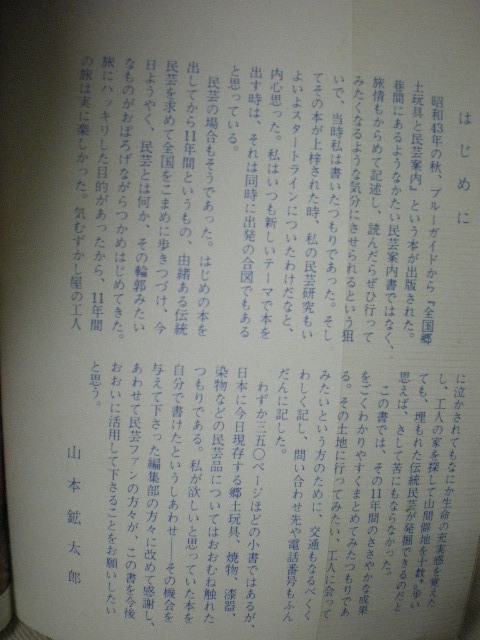 はじめに
昭和43年の秋、ブルーガイドから『全国郷
土玩具と民芸案内』という本が出版された。
巷間にあるようなかたい民芸案内書ではなく、
旅情もからめて記述し、読んだらぜひ行って
みたくなるような気分にさせられるという狙
いで、当時私は書いたつもりであった。そし
てその本が上梓された時、私の民芸研究もい
よいよスタートラインについたわけだなと、
内心思った。私はいつも新しいテーマで本を
出す時は、それは同時に出発の合図でもある
と思っている。
民芸の場合もそうであった。はじめの本を
出してから11年間というもの、由緒ある伝統
民芸を求めて全国をこまめに歩きつづけ、今
日ようやく、民芸とは何か、その輪郭みたい
なものがおぼろげながらつかめはじめてきた。
旅にハッキリした目的があったから、11年間
の旅は実に楽しかった。気むずかし屋の工人
に泣かされてもなにか生命の充実感を覚えた
し、工人の家を探して山間僻地を十数㌔歩い
ても、埋もれた伝統民芸が発掘できるのだと
思えば、さして苦にもならなかった。
この書では、その11年間のささやかな成果
をごくわかりやすくまとめてみたつもりであ
る。その土地に行ってみたい、工人に会って
みたいという方のために、交通もなるべくく
わしく記し、問い合わせ先や電話番号もふん
だんに記した。
わずか三五〇ページほどの小書ではあるが、
日本に今日現存する郷土玩具、焼物、漆器、
染物などの民芸品についてはおおむね触れた
つもりである。私が欲しいと思っていた本を
自分で書けたというしあわせ——その機会を
与えて下さった編集部の方々に改めて感謝し、
あわせて民芸ファンの方々が、この書を今後
おおいに活用して下さることをお願いしたい
と思う。
山本鉱太郎